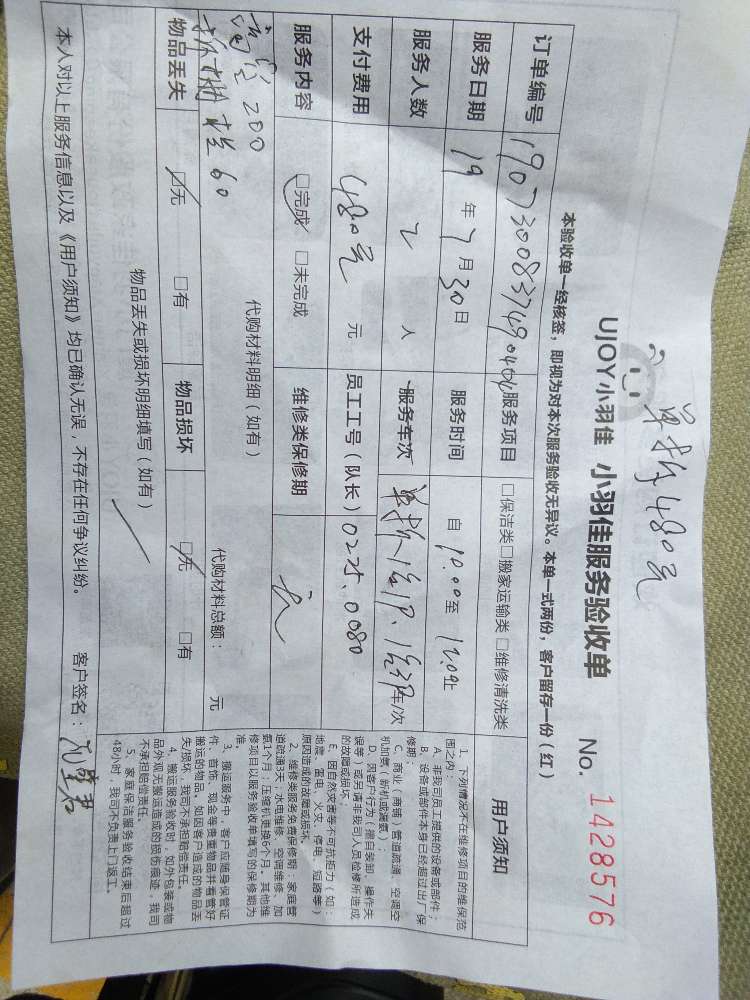 单拆480元
UJOY小羽佳 小羽佳服务验收单 No. 1428576
本验收单一经核签，即视为对本次服务验收无异议。本单一式两份，客户留存一份（红）
订单编号 19073008374904 服务项目 □保洁类□搬家运输类□维修清洗类
服务日期 19年7月30日 服务时间 自10:00至12:0止
服务人数 2人 服务车次 单拆1台1P、1台3P车/次
支付费用 480元 元 员工工号（队长） 0225.0080
服务内容 □完成 □未完成 维修类保修期 无
代购材料明细（如有）
高空200
拆树桂60
代购材料总额： 元
物品丢失 □无 □有 物品损坏 □无 □有
物品丢失或损坏明细填写（如有）
本人对以上服务信息以及《用户须知》均已确认无误，不存在任何争议纠纷。 客户签名：
用户须知
1、下列情况不在维修项目的维保范
围之内：
A、非我司员工提供的设备或部件；
B、设备或部件本身已经超过出厂保
修期；
C、商业（商铺）管道疏通、空调空
机加氨（新机或漏氨）；
D、因客户行为（擅自装卸、操作失
误等）或另请非我司人员检修所造成
的故障或损坏。
E、因自然灾害等不可抗拒力（如：
地震、雷电、火灾、停电、短路等）
原因造成的故障或损坏。
2、维修类服务免费保修期：家庭管
道疏通3天，水电维修、空调维修、加
氨1个月；压缩机更换6个月。其他维
修项目以服务验收单填写的保修期为
准。
3、搬运服务中，客户应随身保管证
件、首饰、现金等贵重物品并看管好
搬运的物品。如因客户造成的物品丢
失/损坏，我司不承担赔偿责任。
4、搬运服务验收时，如外包装或物
品外观无搬运造成的损伤痕迹，我司
不承担赔偿责任。
5、家庭保洁服务验收结束后超过
48小时，我司不负责上门返工。